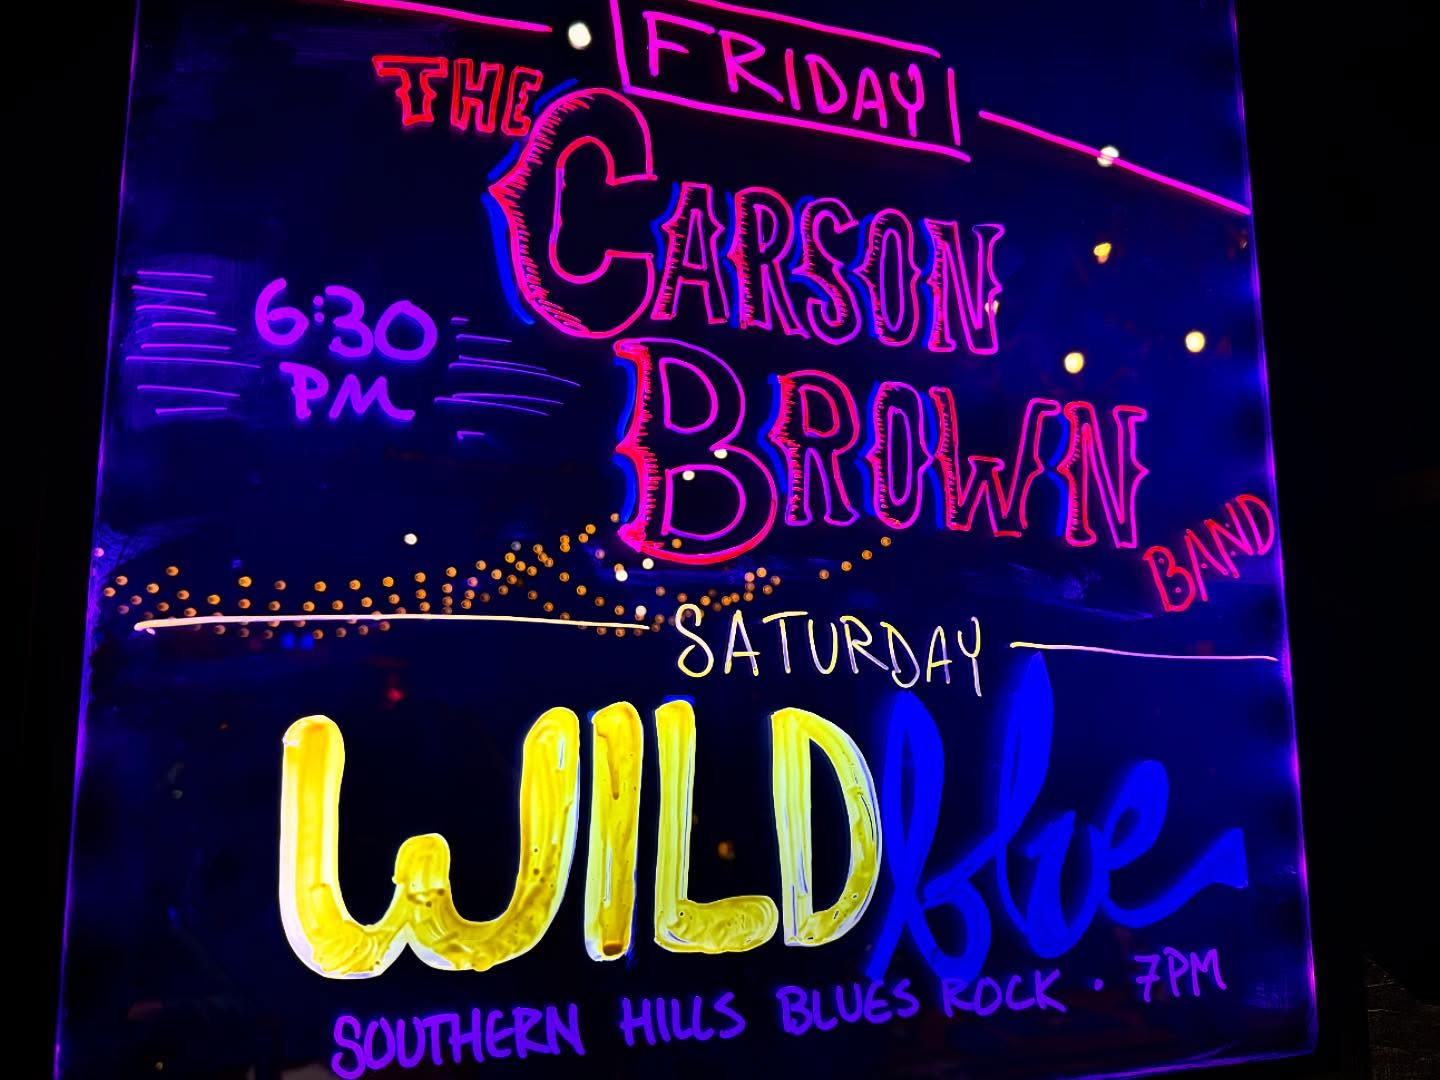 FRIDAY
THE
CARSON
BROWN
BAND
6:30
PM
SATURDAY
WILDblue
SOUTHERN HILLS BLUES ROCK · 7PM